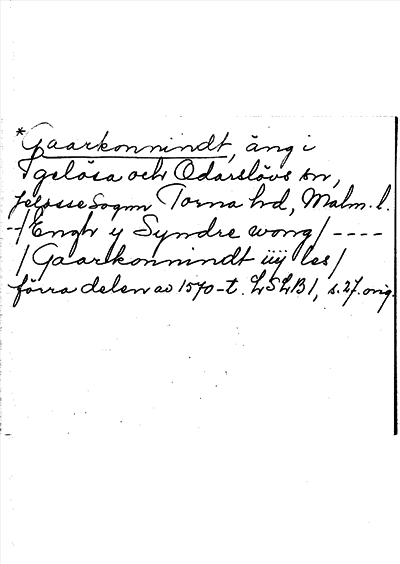 *Gaarkonnindt, äng i
Igelösa och Odarslövs sn,
Jeløsse Sognn Torna hd, Malm. l.
--/Engh y Syndre wong/ ----
/Gaarkonnindt iiÿ les/
förra delen av 1570-t. LSLB1, s. 27. orig.